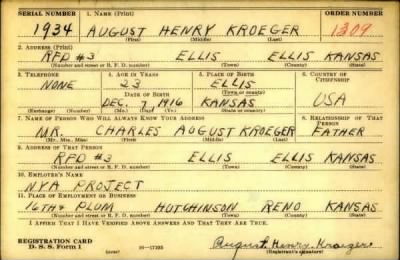 SERIAL NUMBER 1. NAME (Print) ORDER NUMBER
1934 AUGUST HENRY KROEGER 1309
(First) (Middle) (Last)
2. ADDRESS (Print)
RFD #3 ELLIS ELLIS KANSAS
(Number and street or R. F. D. number) (Town) (County) (State)
3. TELEPHONE 4. AGE IN YEARS 5. PLACE OF BIRTH 6. COUNTRY OF CITIZENSHIP
NONE 23 ELLIS
DATE OF BIRTH (Town or county)
DEC. 7, 1916 KANSAS USA
(Exchange) (Number) (Mo.) (Day) (Yr.) (State or country)
7. NAME OF PERSON WHO WILL ALWAYS KNOW YOUR ADDRESS 8. RELATIONSHIP OF THAT PERSON
MR. CHARLES AUGUST KROEGER FATHER
(Mr., Mrs., Miss) (First) (Middle) (Last)
9. ADDRESS OF THAT PERSON
RFD #3 ELLIS ELLIS KANSAS
(Number and street or R. F. D. number) (Town) (County) (State)
10. EMPLOYER'S NAME
NYA PROJECT
11. PLACE OF EMPLOYMENT OR BUSINESS
16TH & PLUM HUTCHINSON RENO KANSAS
(Number and street or R. F. D. number) (Town) (County) (State)
I AFFIRM THAT I HAVE VERIFIED ABOVE ANSWERS AND THAT THEY ARE TRUE.
REGISTRATION CARD
D. S. S. FORM 1 16—17105 August Henry Kroeger
(over) (Registrant's signature)